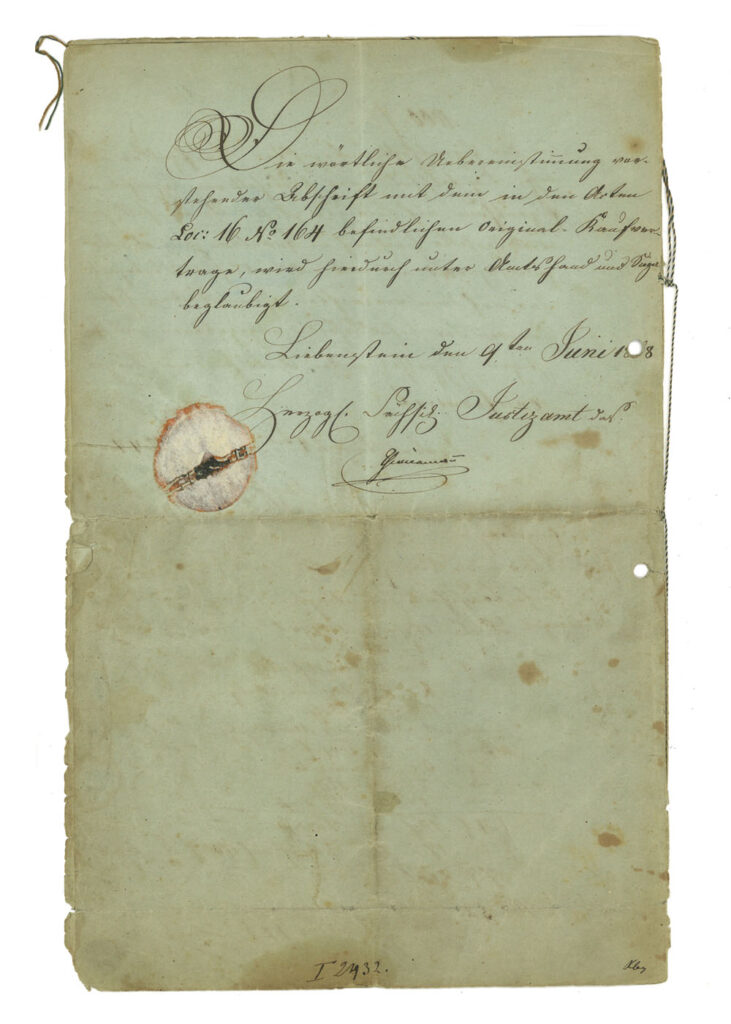 Die wörtliche Uebereinstimmung vor-
stehender Abschrift mit dem in den Acten
Loc: 16 No 164 befindlichen Original-Kaufver-
trage, wird hierdurch unter Amtshand und Siegel
beglaubigt.
Liebenstein den 9ten Juni
Herzogl. Sächsisch. Justizamt das.
I 2432.